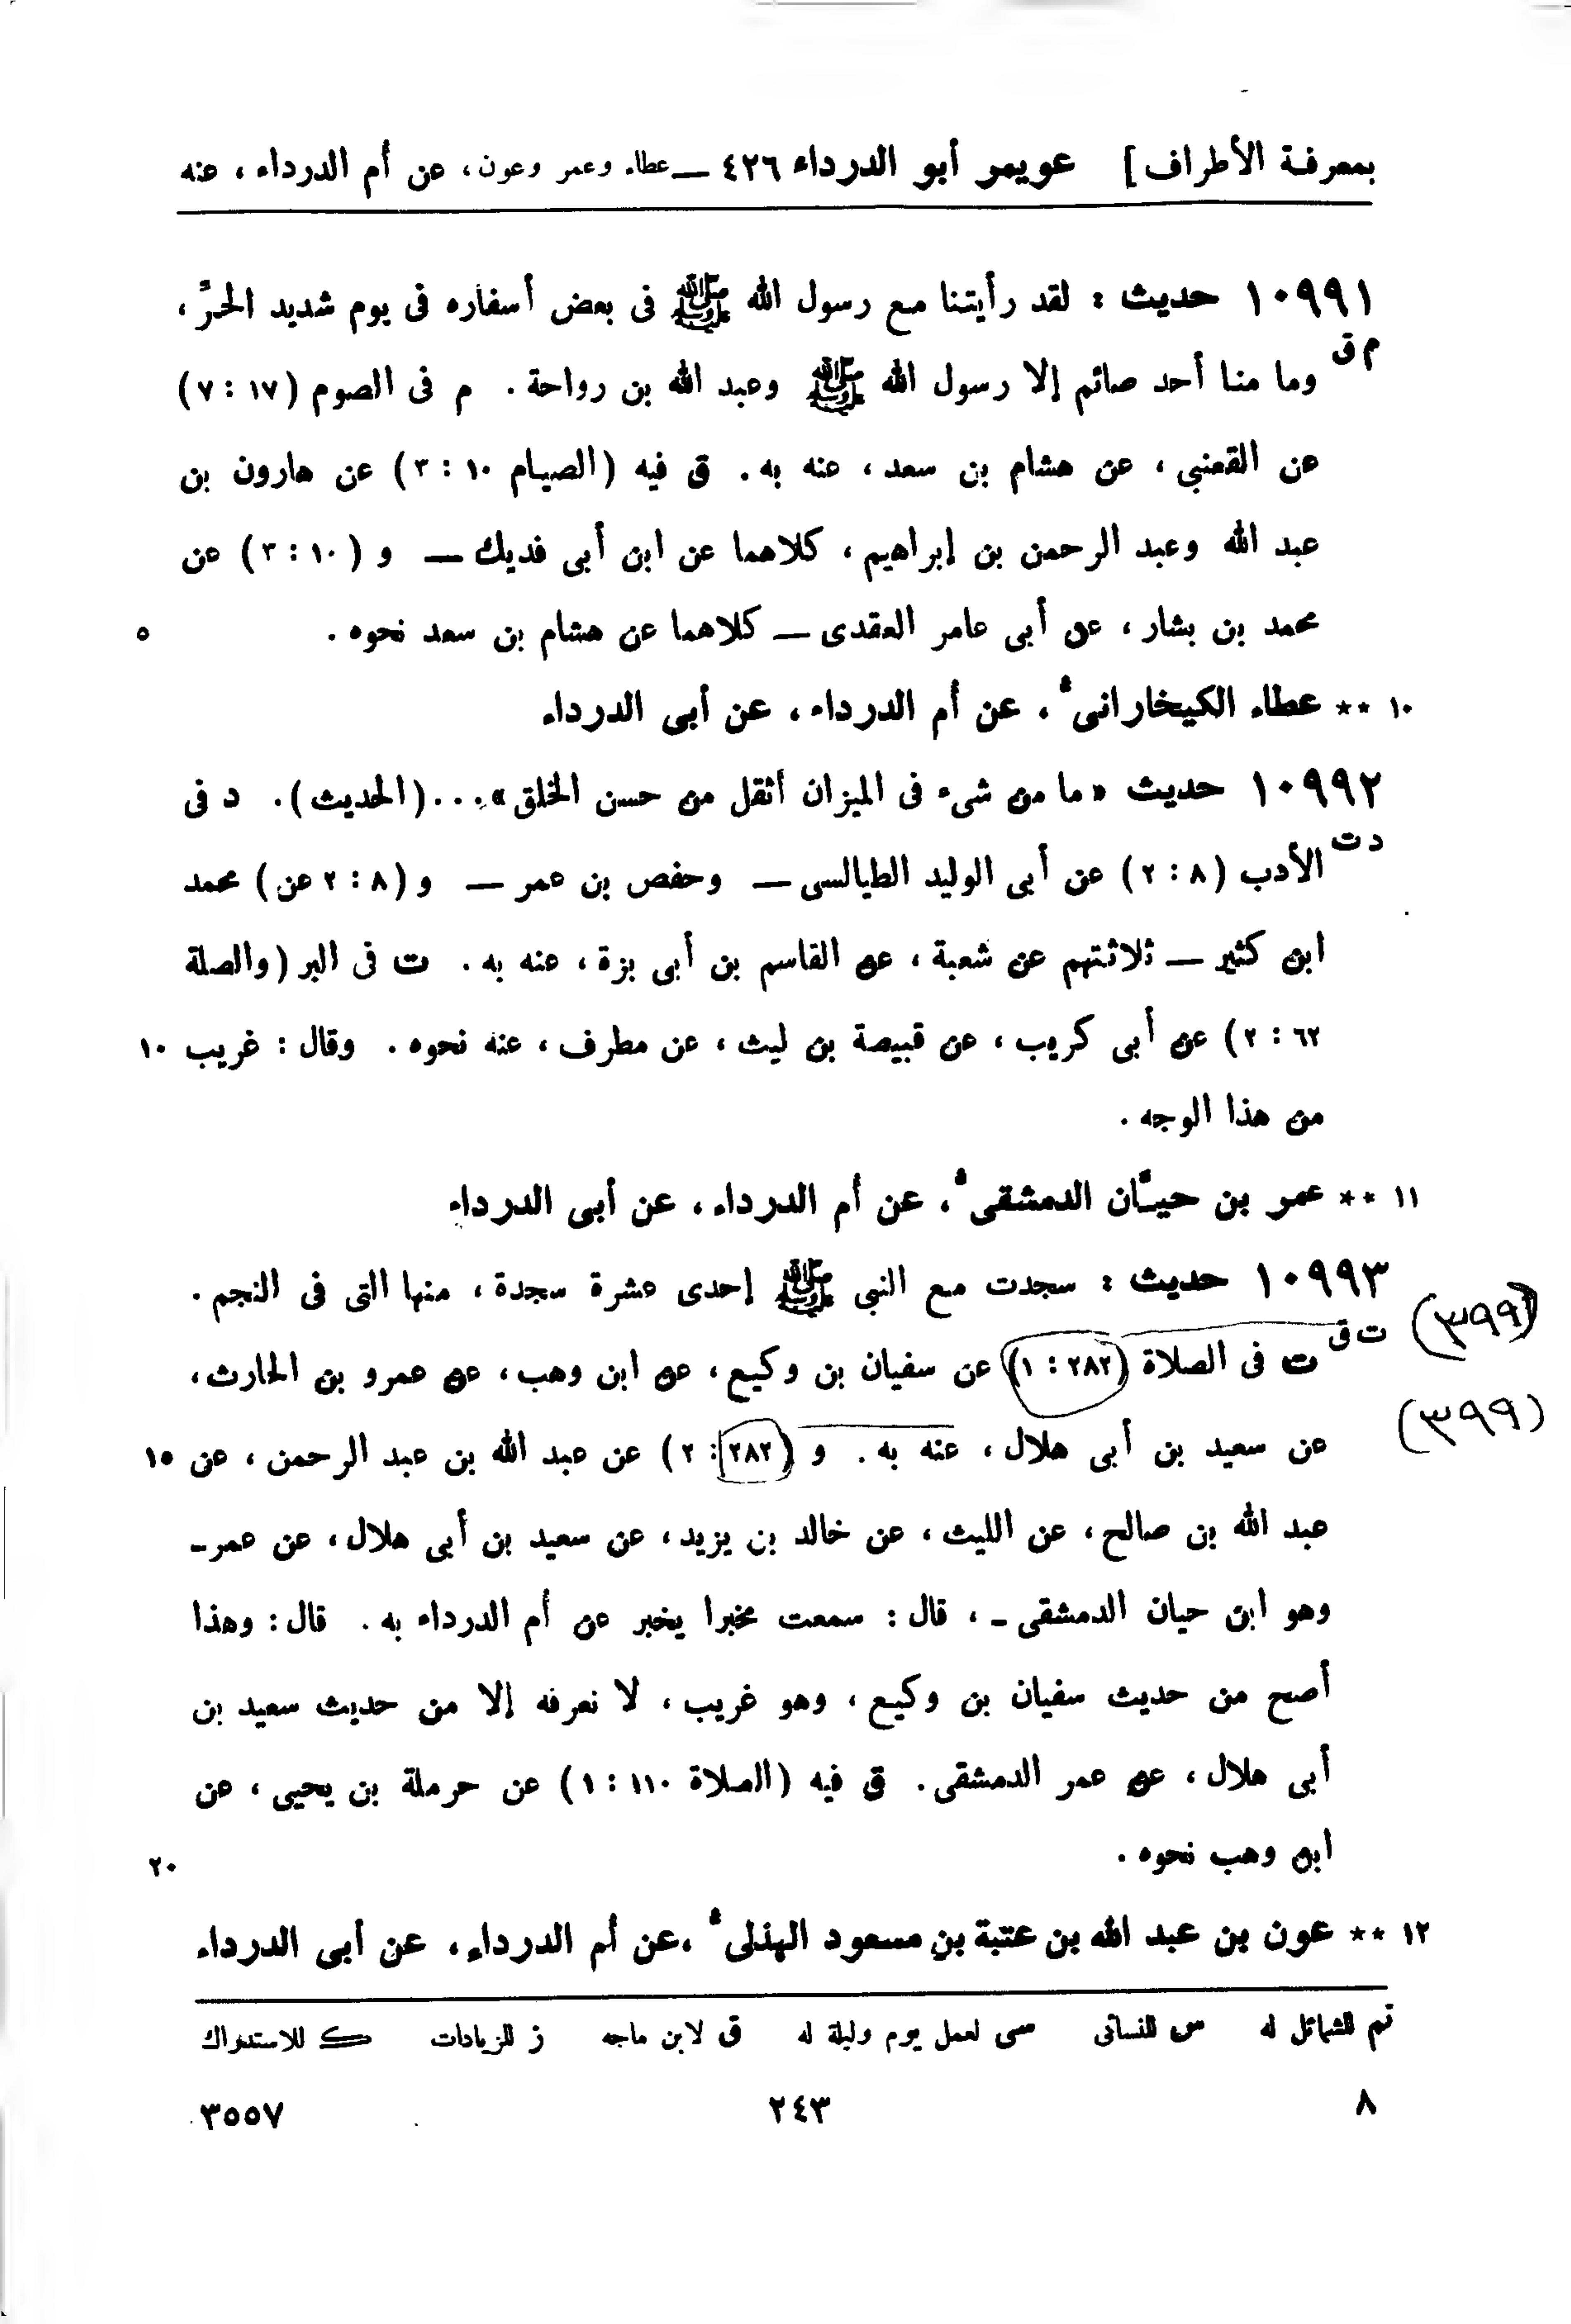 بمعرفة الأطراف] عويمر أبو الدرداء ٤٢٦ — عطاء وعمر وعون، عن أم الدرداء، عنه
١٠٩٩١ حديث : لقد رأيتنا مع رسول الله ﷺ فى بعض أسفاره فى يوم شديد الحرّ،
م ق
وما منا أحد صائم إلا رسول الله ﷺ وعبد الله بن رواحة . م فى الصوم (١٧ : ٧)
عن القعنبي ، عن هشام بن سعد ، عنه به . ق فيه (الصيام ١٠ : ٣) عن هارون بن
عبد الله وعبد الرحمن بن إبراهيم ، كلاهما عن ابن أبى فديك — و (١٠ : ٣) عن
محمد بن بشار ، عن أبى عامر العقدى — كلاهما عن هشام بن سعد نحوه . ٥
١٠ ** عطاء الكيخارانىُّ، عن أم الدرداء، عن أبى الدرداء
١٠٩٩٢ حديث «ما من شىء فى الميزان أثقل من حسن الخلق»... (الحديث). د فى
د ت
الأدب (٨ : ٢) عن أبى الوليد الطيالسى — وحفص بن عمر — و (٨ : ٢ عن) محمد
ابن كثير — ثلاثتهم عن شعبة ، عن القاسم بن أبى بزة ، عنه به . ت فى البر (والصلة
٦٢ : ٢) عن أبى كريب ، عن قبيصة بن ليث ، عن مطرف ، عنه نحوه . وقال : غريب ١٠
من هذا الوجه .
١١ ** عمر بن حيّان الدمشقىُّ، عن أم الدرداء، عن أبى الدرداء
١٠٩٩٣ حديث : سجدت مع النبي ﷺ إحدى عشرة سجدة ، منها التى فى النجم .
ت ق (٣٩٩)
ت فى الصلاة (٢٨٢ : ١) عن سفيان بن وكيع ، عن ابن وهب ، عن عمرو بن الحارث ،
(٣٩٩)
عن سعيد بن أبى هلال ، عنه به . و (٢٨٢ : ٢) عن عبد الله بن عبد الرحمن ، عن ١٥
عبد الله بن صالح ، عن الليث ، عن خالد بن يزيد ، عن سعيد بن أبى هلال ، عن عمر -
وهو ابن حيان الدمشقى - ، قال : سمعت مخبرا يخبر عن أم الدرداء به . قال : وهذا
أصح من حديث سفيان بن وكيع ، وهو غريب ، لا نعرفه إلا من حديث سعيد بن
أبى هلال ، عن عمر الدمشقى . ق فيه (الصلاة ١١٠ : ١) عن حرملة بن يحيى ، عن
ابن وهب نحوه . ٢٠
١٢ ** عون بن عبد الله بن عتبة بن مسعود الهذلىُّ، عن أم الدرداء، عن أبى الدرداء
تم للشمائل له س للنسائى سى لعمل يوم وليلة له ق لابن ماجه ز للزيادات ك للاستدراك
٨ ٢٤٣ ٣٥٥٧